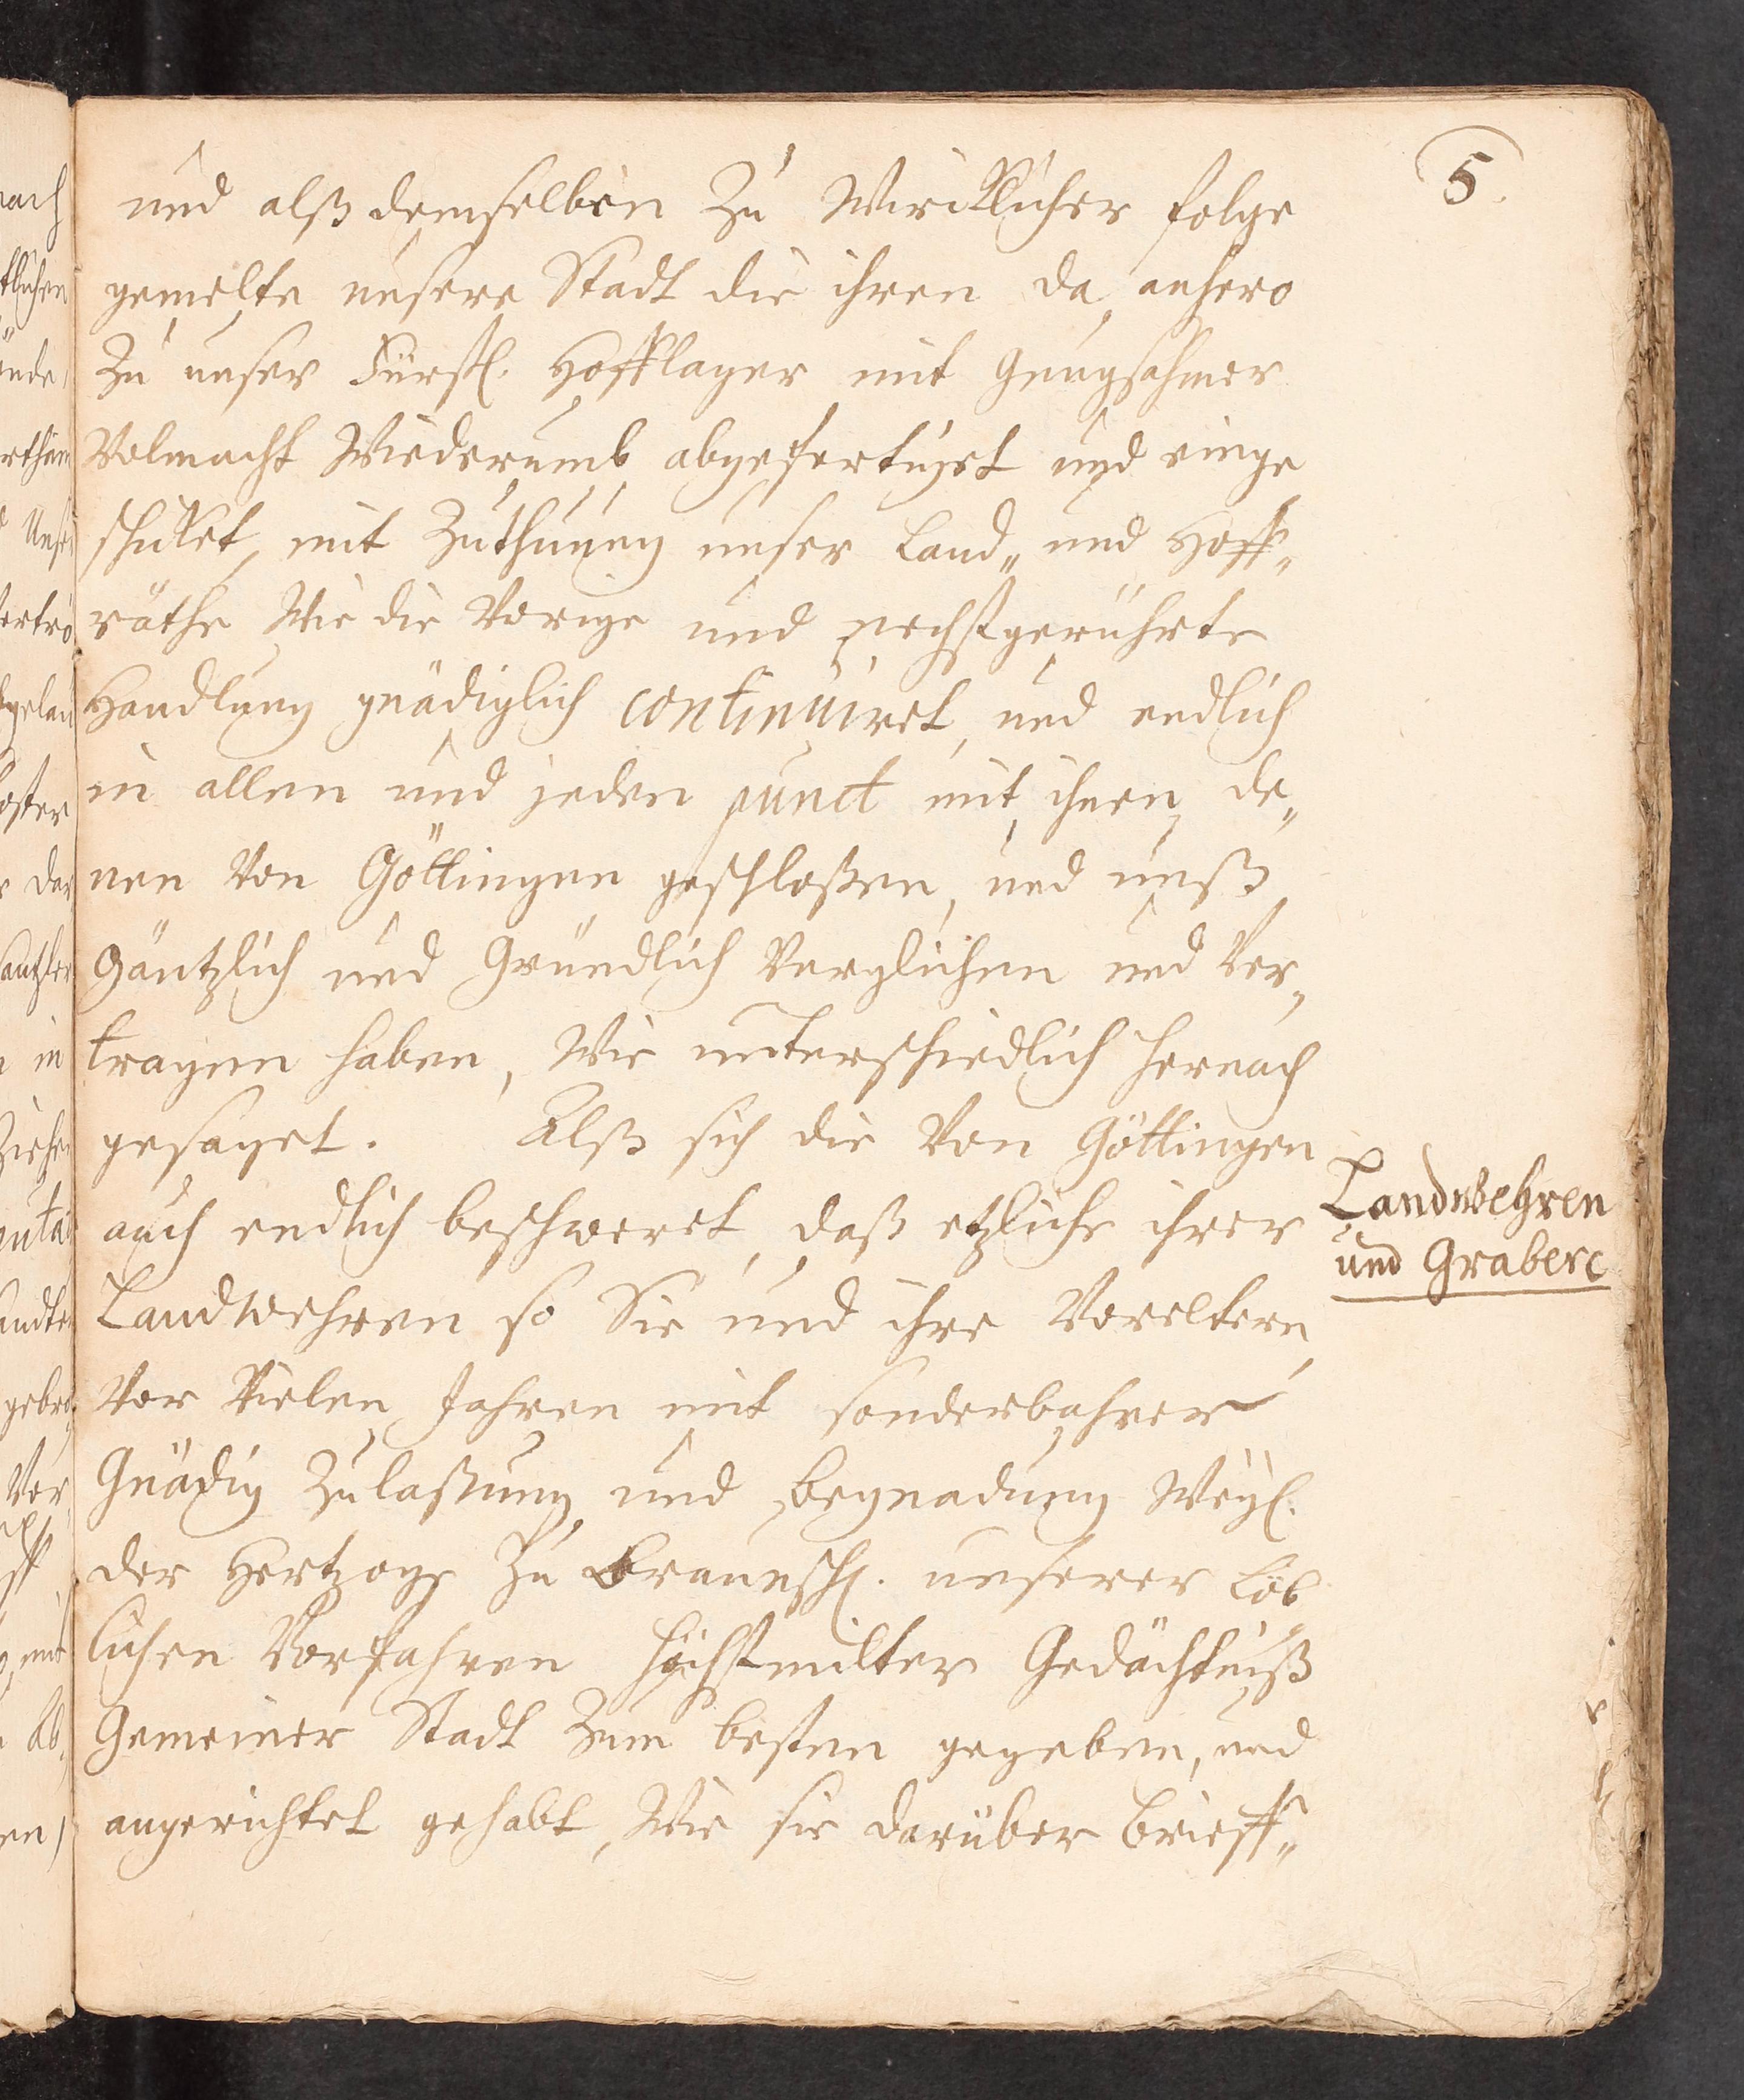 5.
und alß demselben Zu Wircklicher folge
gemelte unsere Stadt die ihren da anhero
Zu unser Fürstl. Hofflager mit Gnugsahmer
Volmacht Wiederumb abgefertiget und einge
schicket, mit Zuthuung unser Land„ und Hoff„
räthe Wie die Vorige und nechstgerührte
Handlung gnädiglich continuiret, und endlich
in allen und jeden punct mit ihnen de„
nen Von Göttingen geschloßen, und unß
Gäntzlich und Gründlich Verglichen und Ver„
tragen haben, Wie unterschiedlich hernach
gesaget. Alß sich die Von Göttingen
auch endlich beschweret, daß etzliche ihrer
Landwehren so Sie und ihre Voreltern,
Vor Vielen Jahren mit sonderbahrer
Gnädig Zulaßung und Begnadung Weyl.
der Hertzoge Zu Braunschl. unserer Löb
lichen Vorfahren höchstmilter Gedächtniß
Gemeiner Stadt Zum besten gegeben, und
angerichtet gehabt, Wie sie darüber Brieff„
Landwehren
und Graben
nach
tlichen
ände,
Unser
oster
der
in
mit